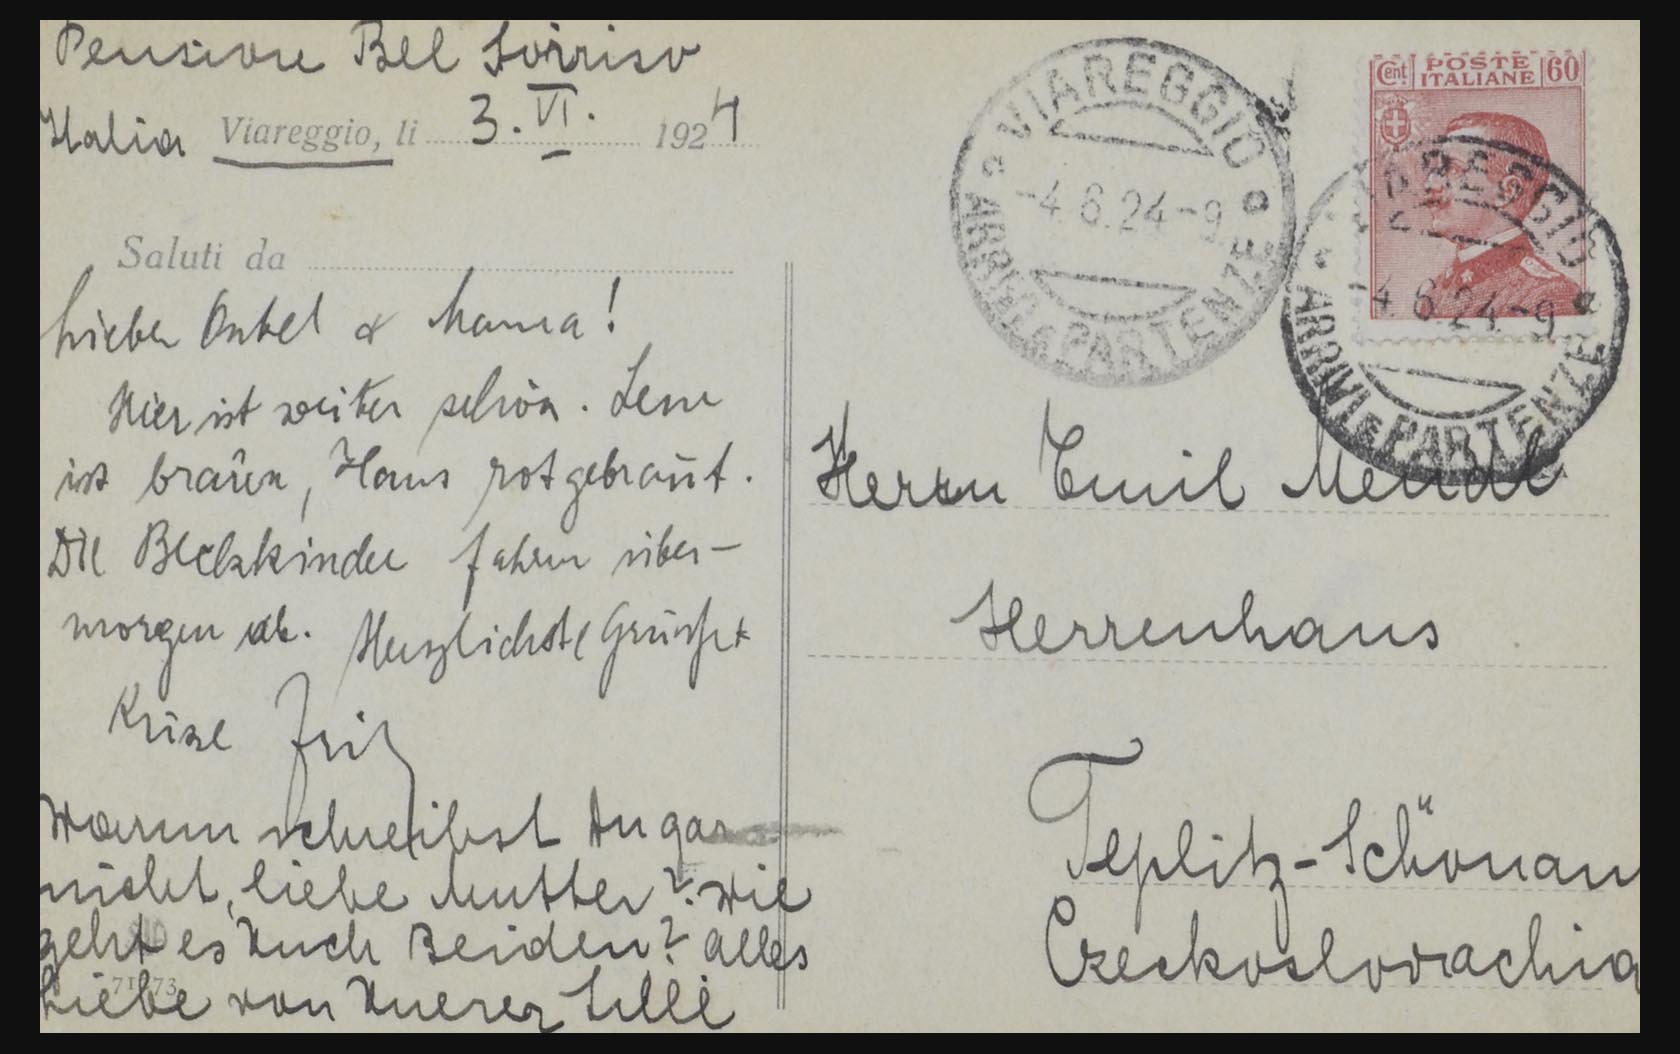 Pensione Bel Sorriso
Italia Viareggio, li 3. VI. 1924
Saluti da
Lieber Onkel & Mama!
Hier ist weiter schön. Lene
ist braun, Hans rotgebraut.
Die Kinder fahren über-
morgen ab. Herzlichste Grüsse
Fritz
Warum schreibst Du gar
nicht, liebe Mutter? Wie
geht es Euch Beiden? Alles
Liebe von Euerer Lilli
VIAREGGIO
-4.6.24-9
ARRIVI E PARTENZE
Cent POSTE ITALIANE 60
VIAREGGIO
-4.6.24-9
ARRIVI E PARTENZE
Herrn Emil Mendl
Herrenhaus
Teplitz-Schönau
Czeckoslovachia